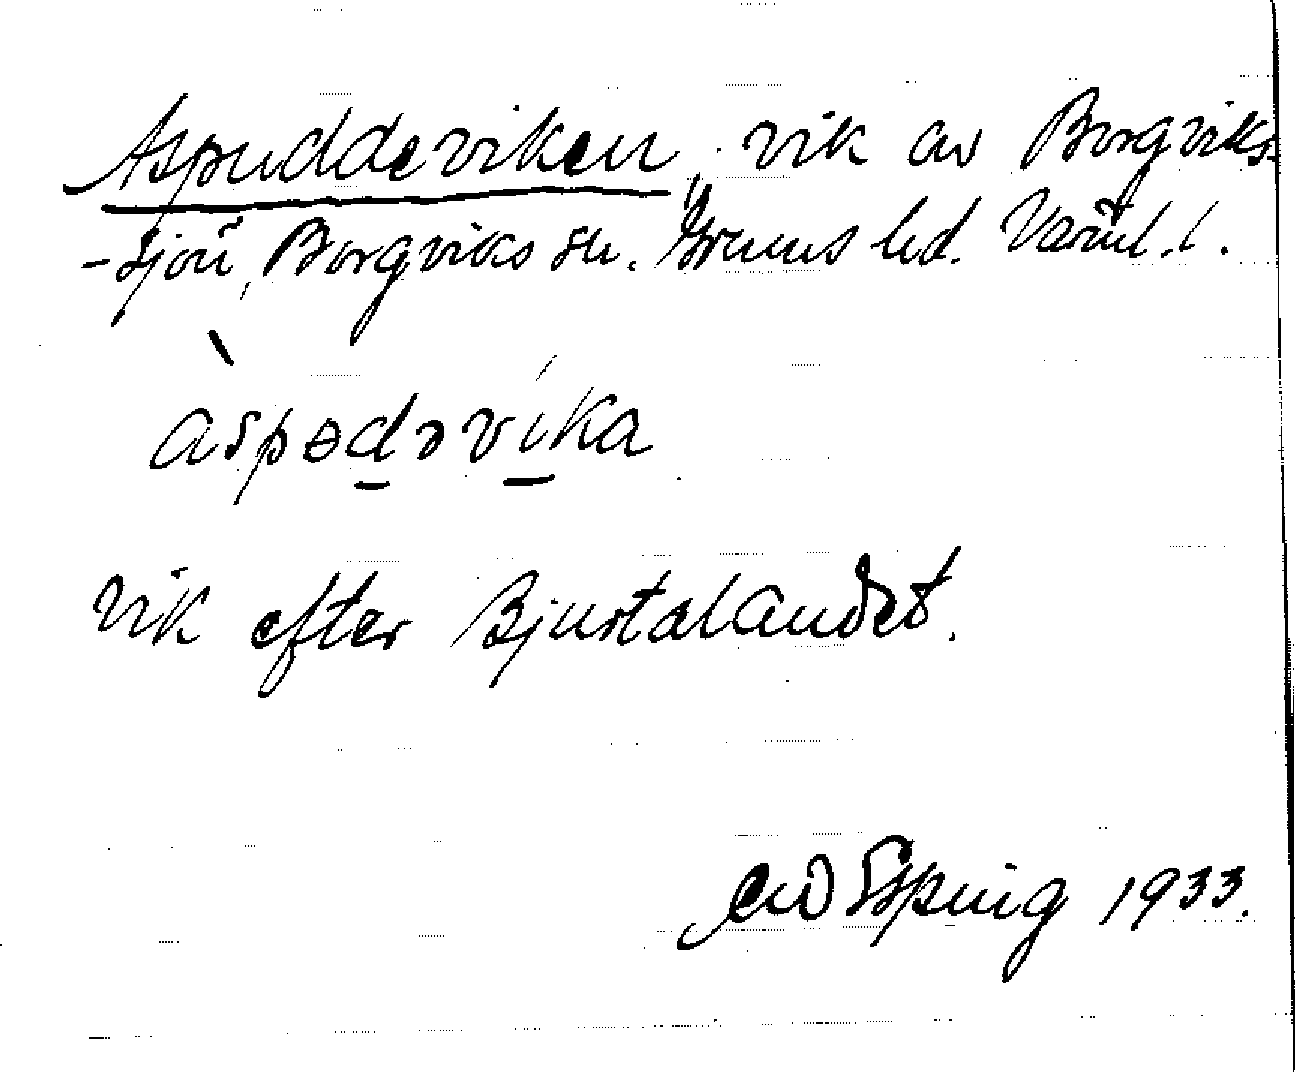 Aspuddeviken, vik av Borgviks-
-sjön, Borgviks sn. Grums hd. Värml. l.
àspədəvíka
Vik efter Bjurtalandet.
1933.